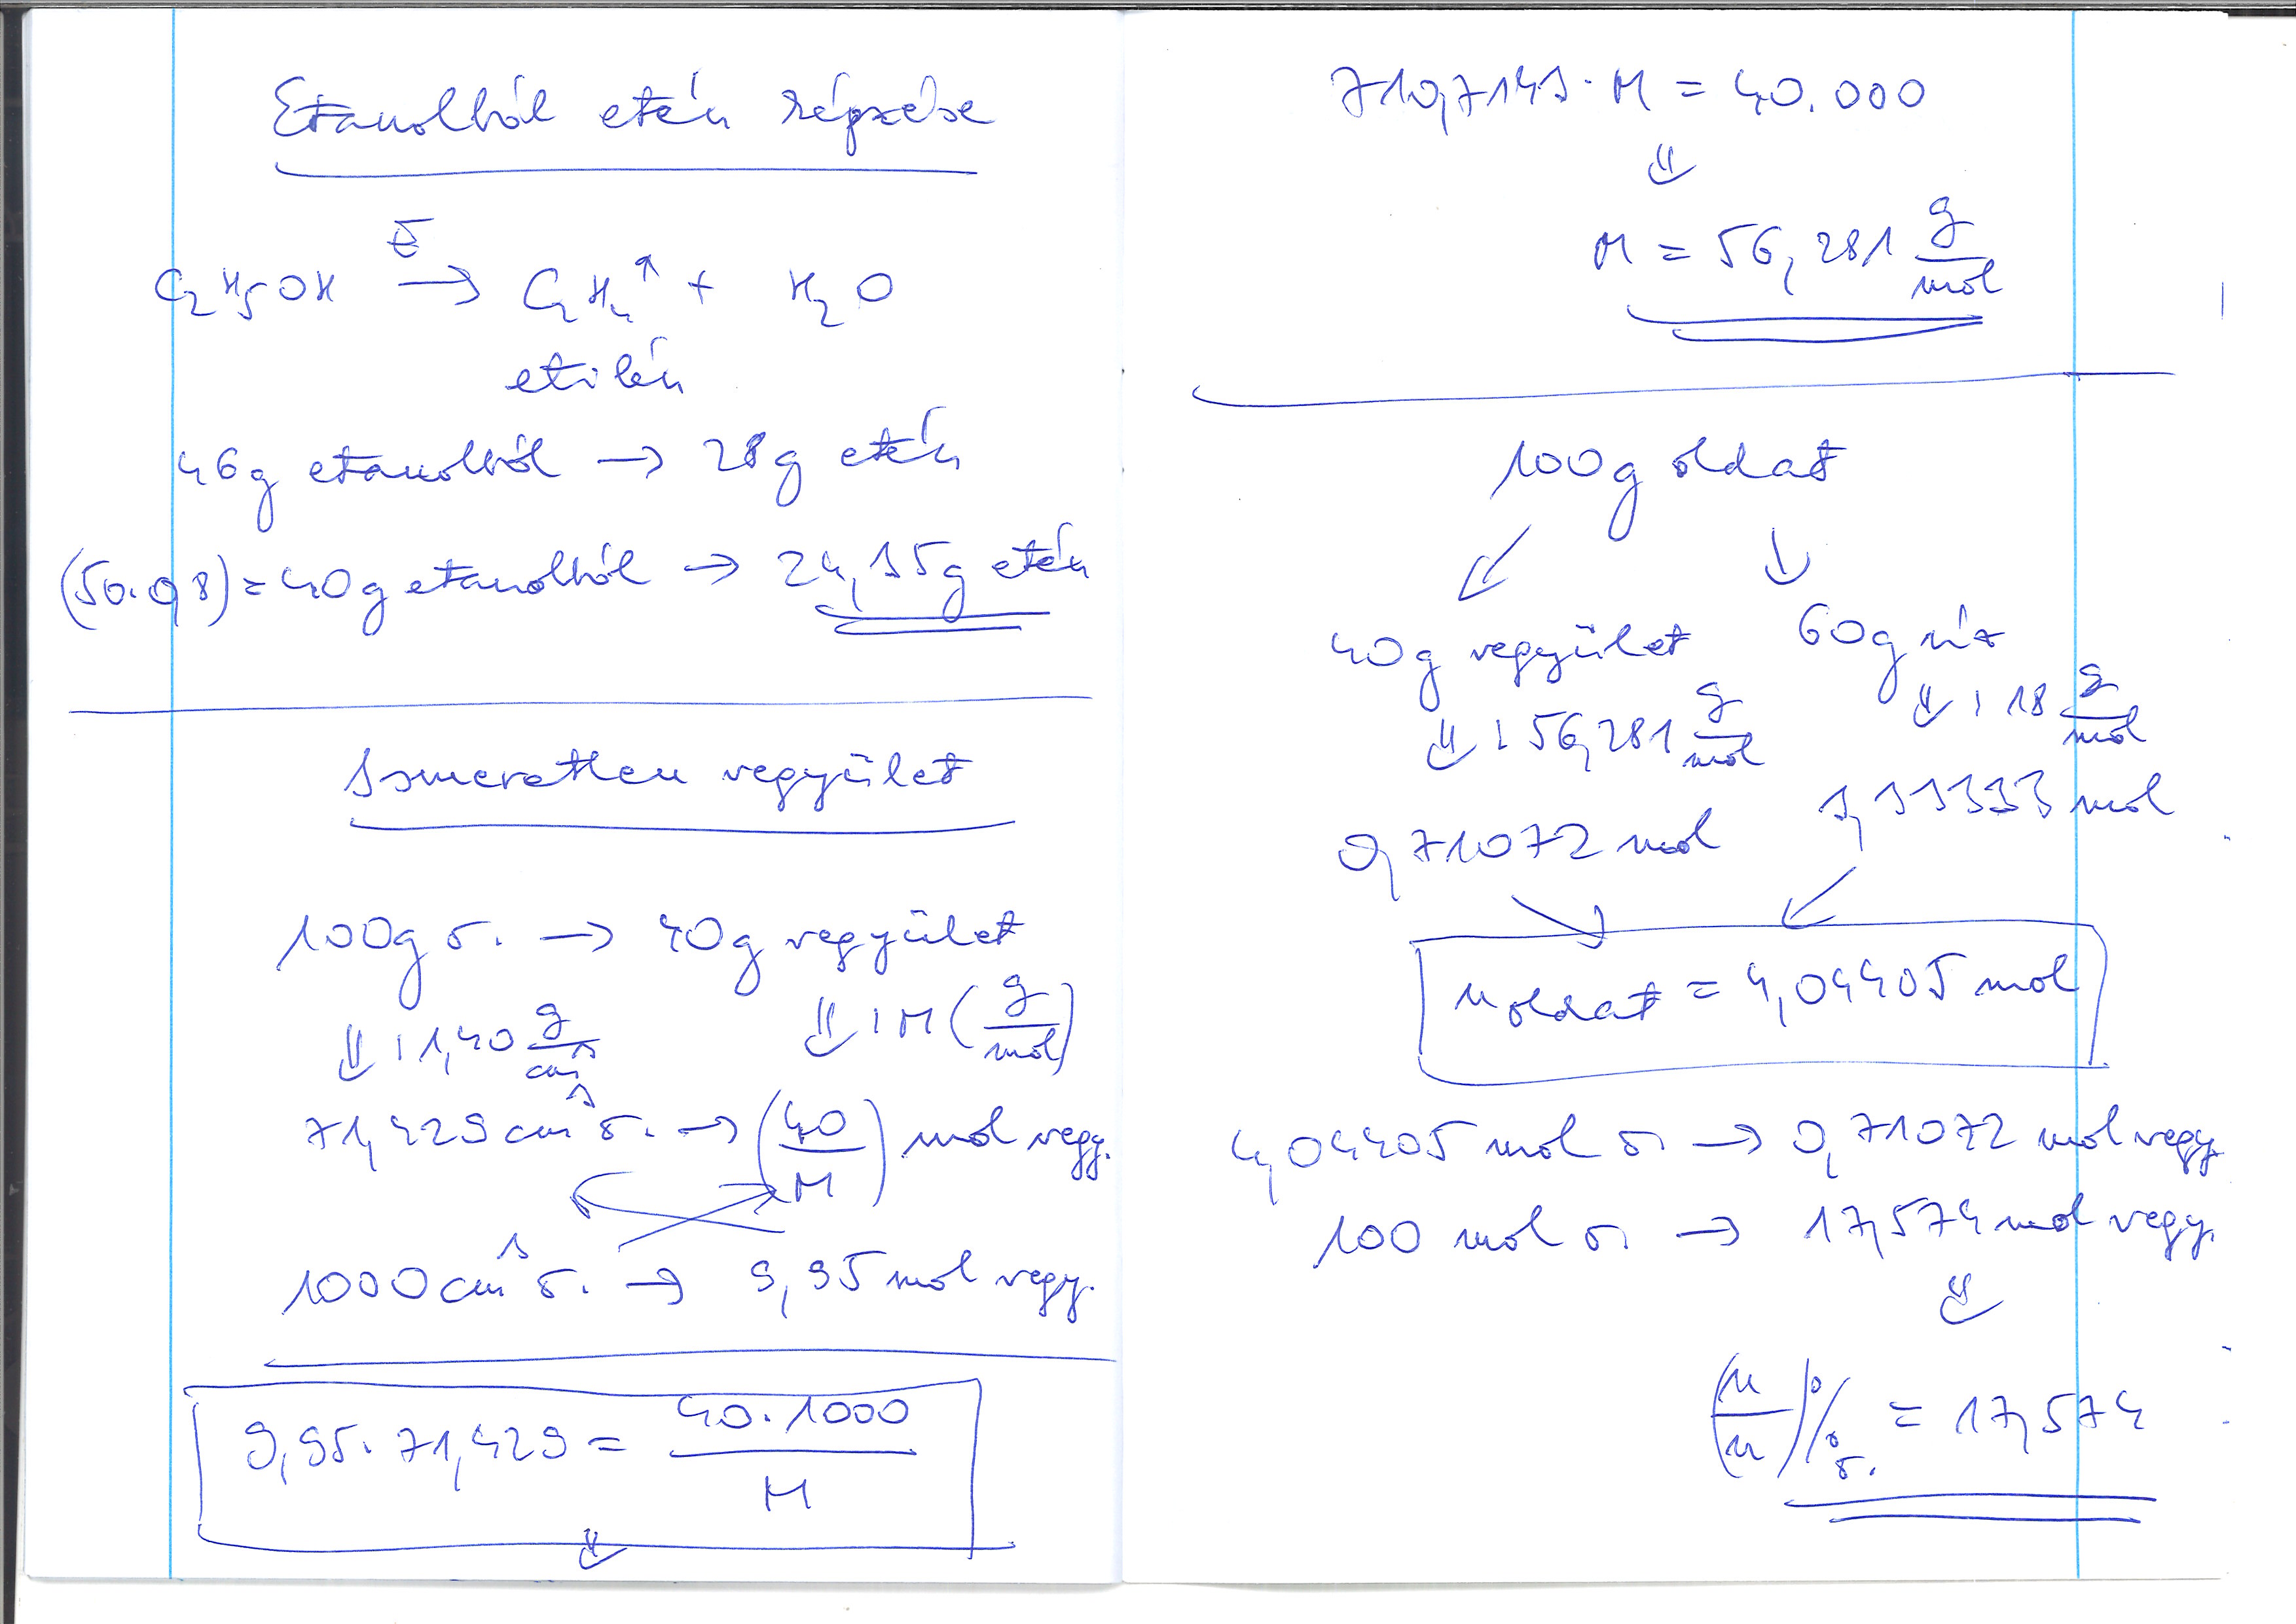 Etanolból etén képzése
C2H5OH →E C2H4↑ + H2O
etilén
46g etanolból → 28g etén
(50·0,8) = 40g etanolból → 24,35g etén
Ismeretlen vegyület
100g o. → 40g vegyület
⇓ : 1,40 g/cm³ ⇓ : M (g/mol)
71,429 cm³ o. → (40/M) mol vegy.
1000 cm³ o. → 9,95 mol vegy.
9,95 · 71,429 = 40·1000/M
⇓
710,7143 · M = 40.000
⇓
M = 56,281 g/mol
100g oldat
↙ ↓
40g vegyület 60g víz
⇓ : 56,281 g/mol ⇓ : 18 g/mol
0,71072 mol 3,33333 mol
n oldat = 4,04405 mol
4,04405 mol o. → 0,71072 mol vegy.
100 mol o. → 17,574 mol vegy.
⇓
(n/n)% o. = 17,574